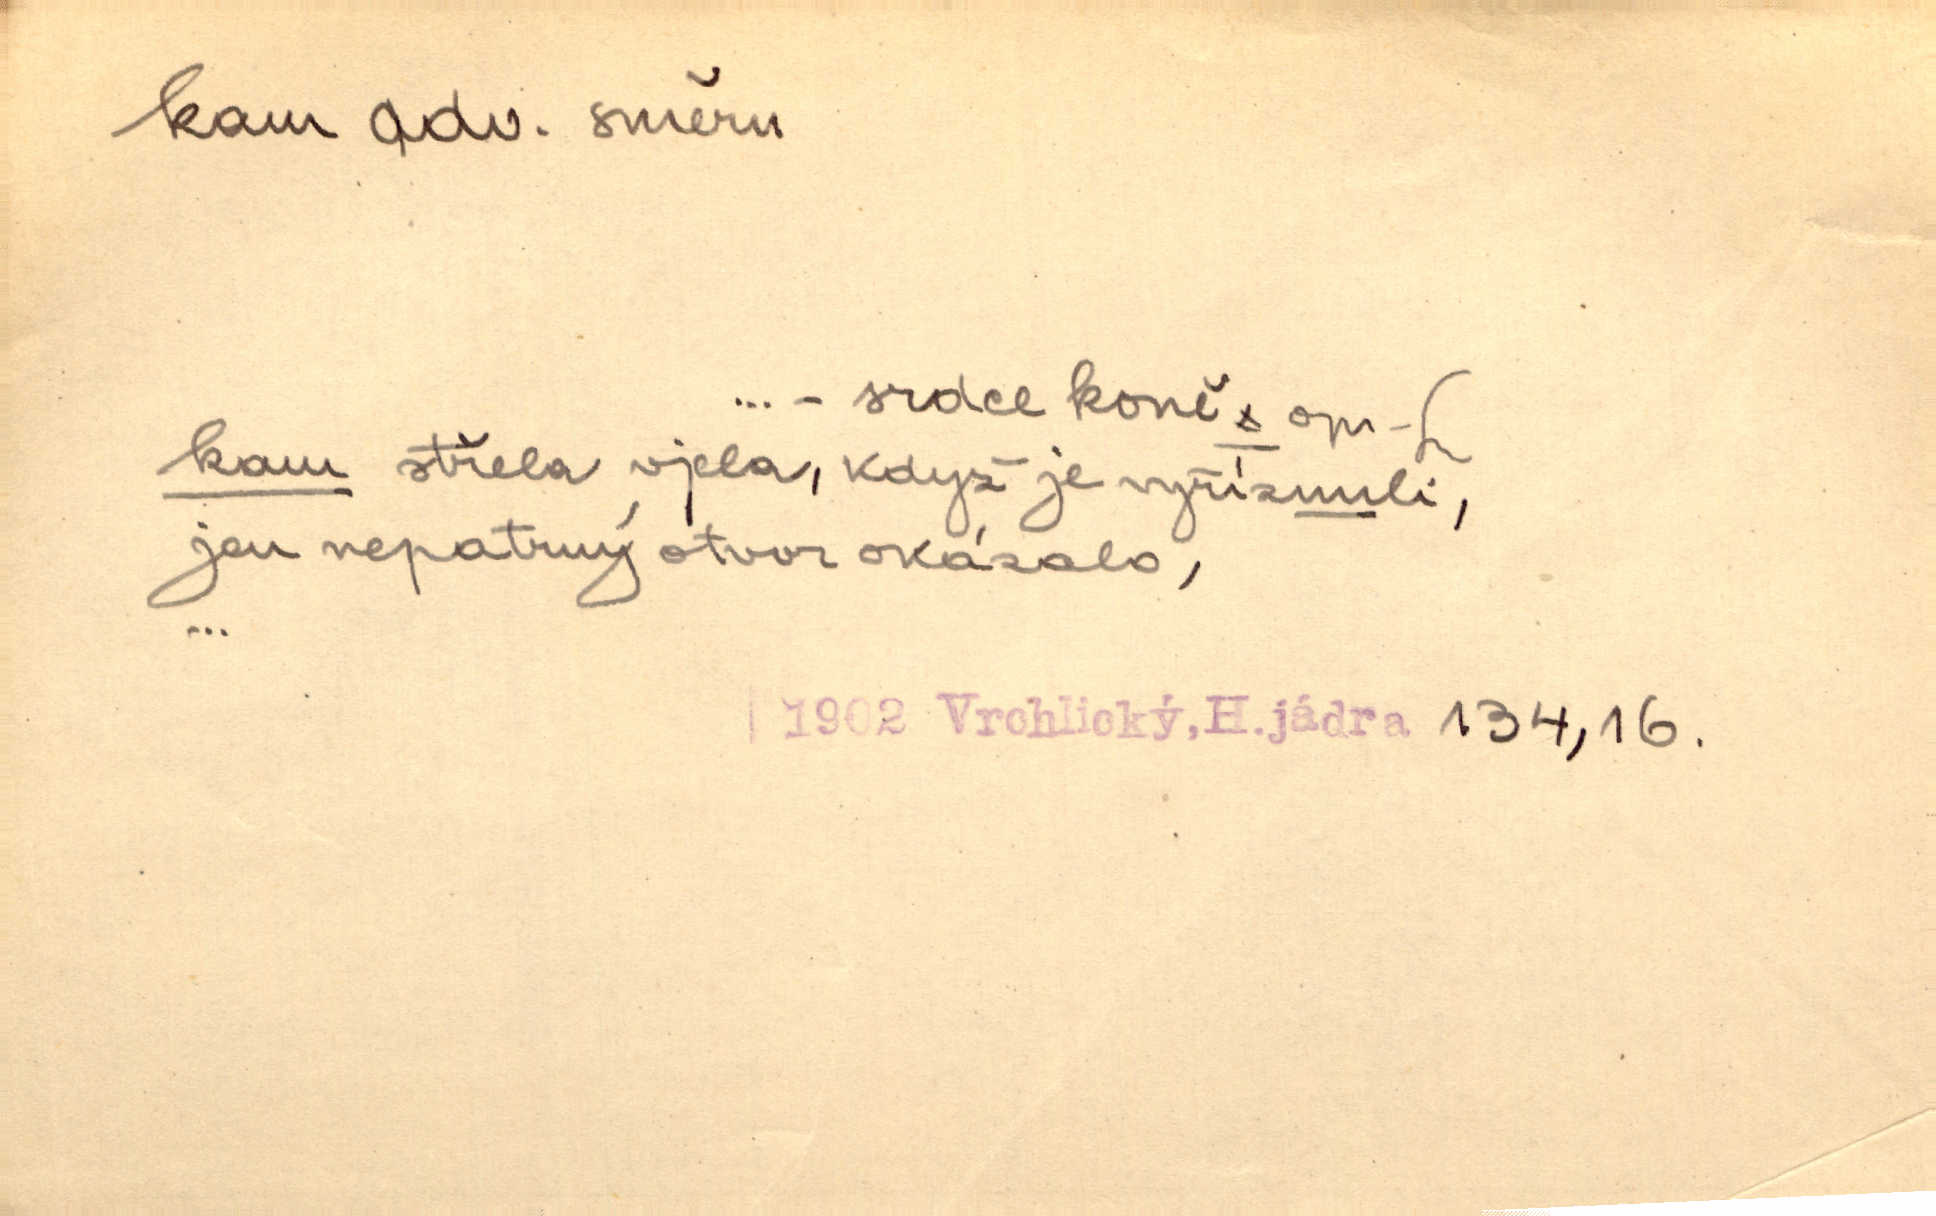 kam adv. směru
... - srdce koně s opr-
kam střela vjela, když je vyříznuli,
jen nepatrný otvor okázalo,
...
1902 Vrchlický, H. jádra 134, 16.